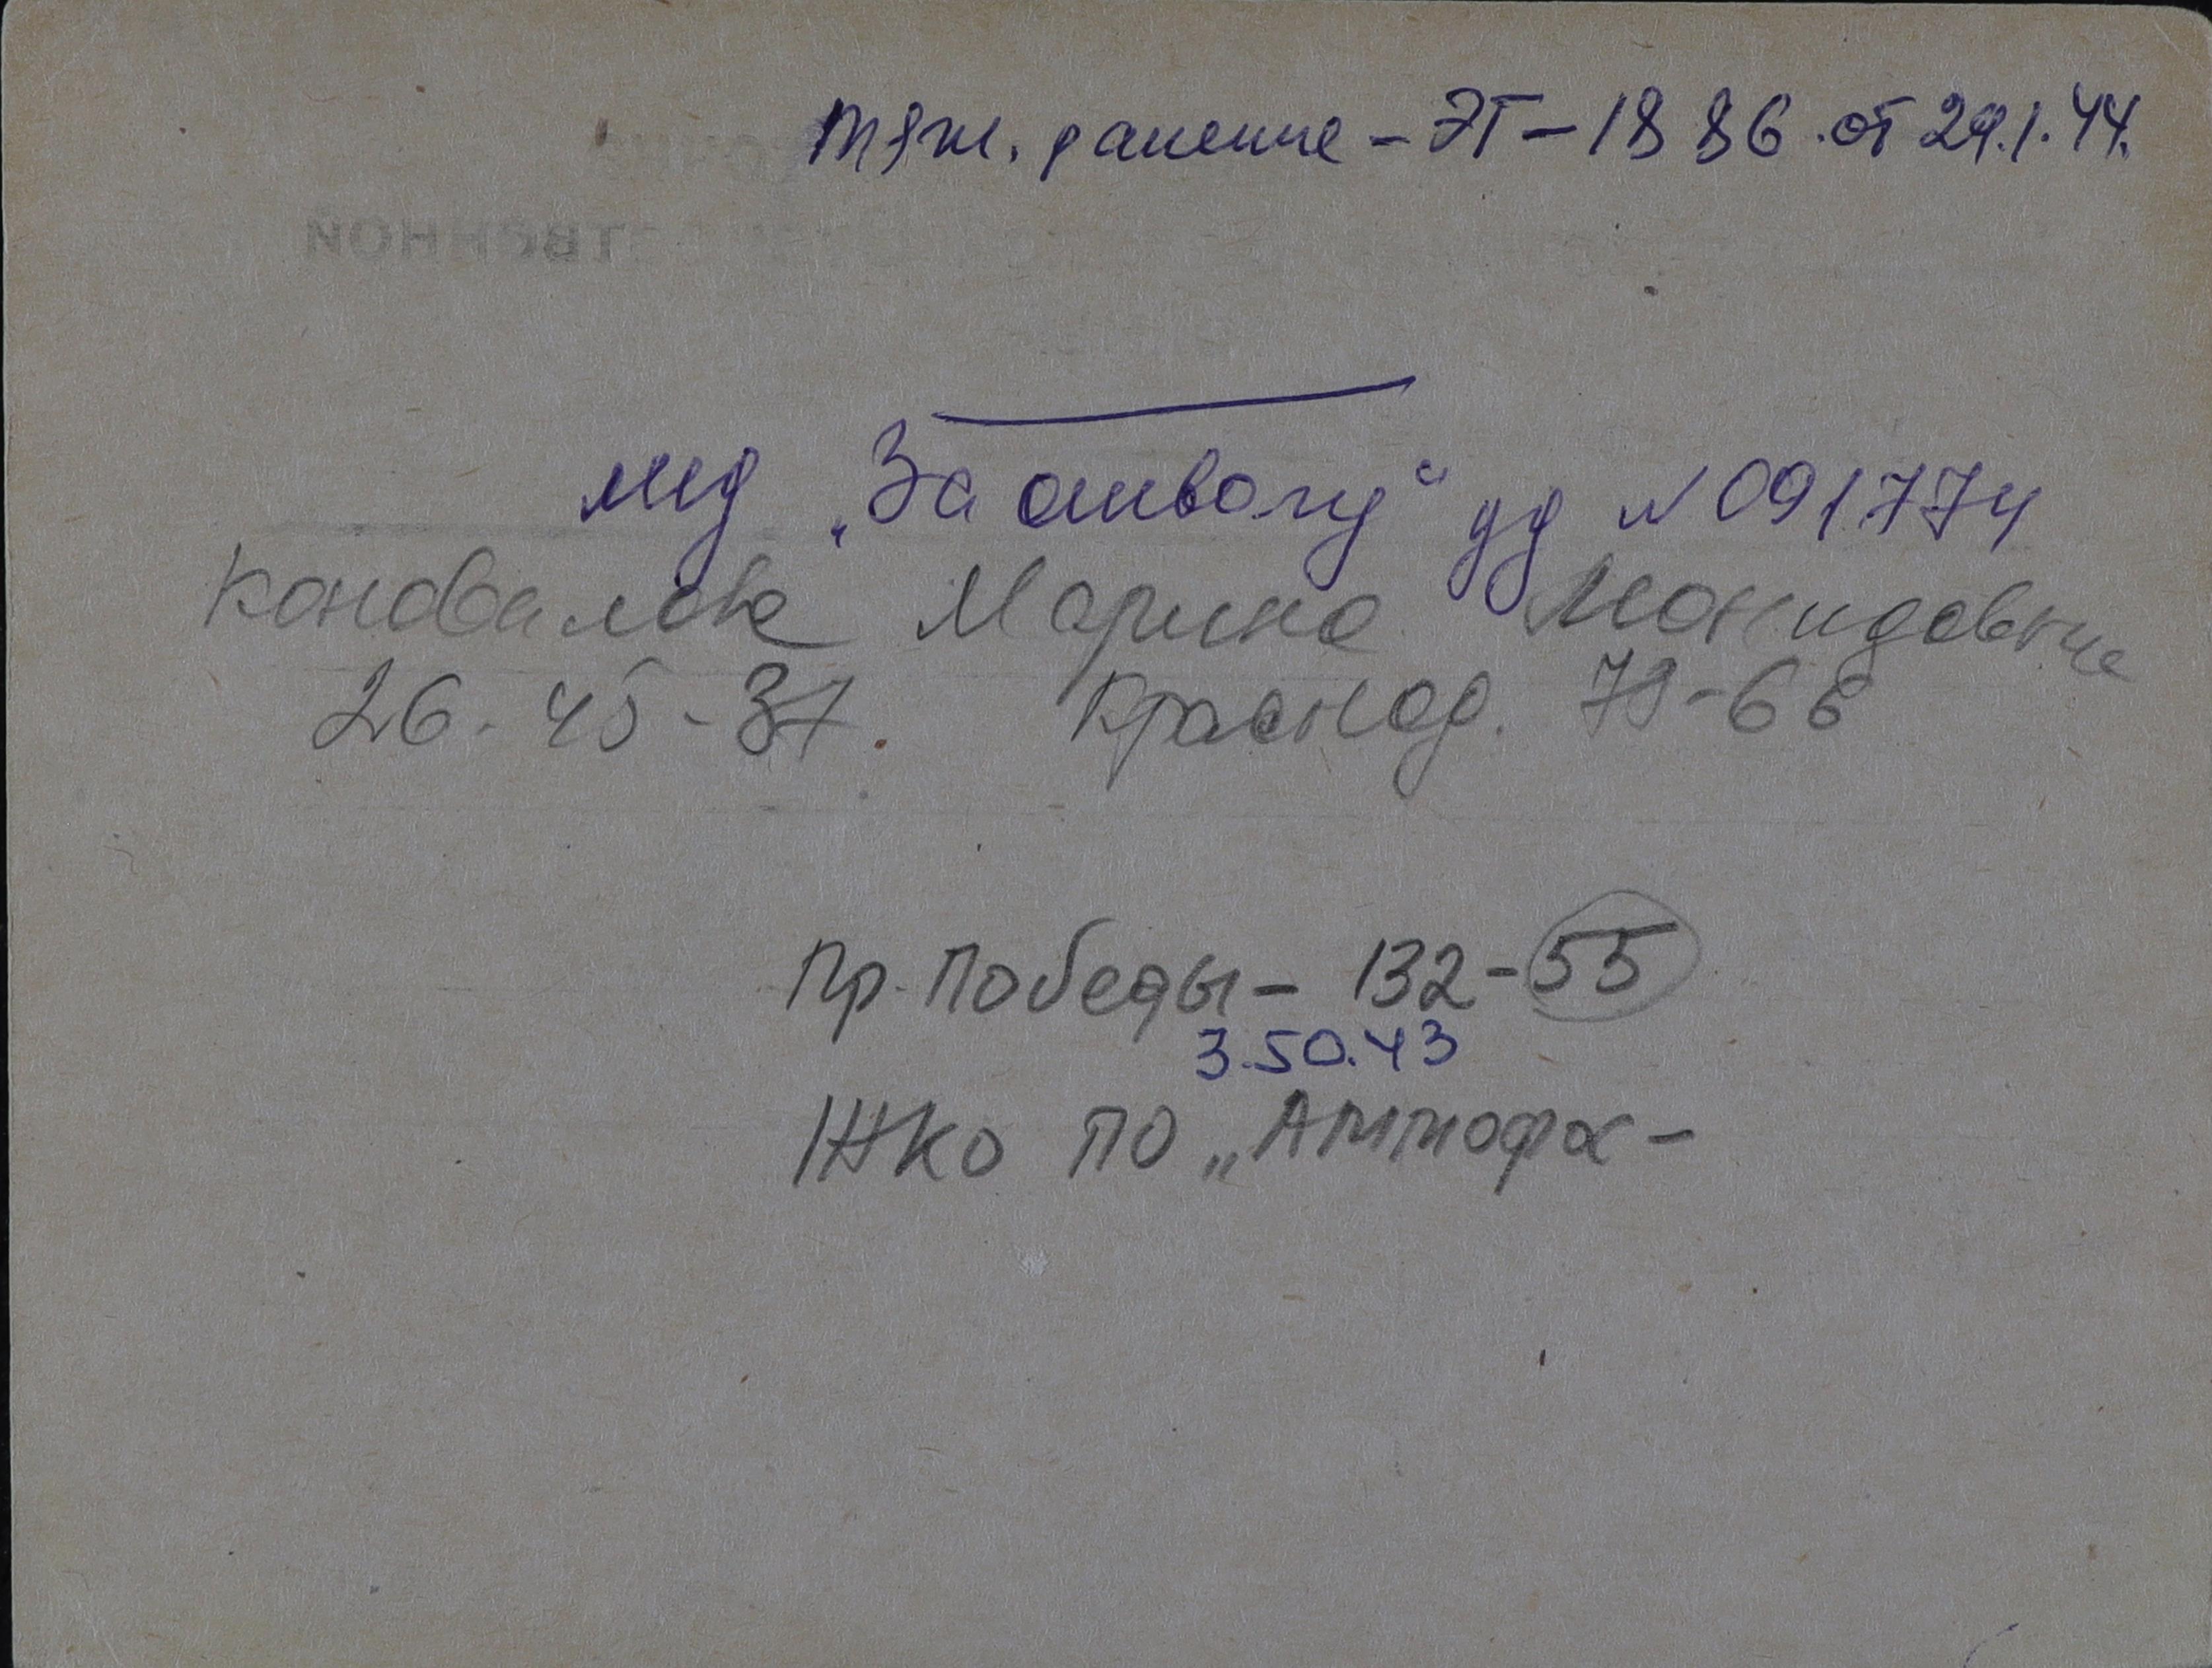 тяж. ранение - ЭГ - 1886 от 29.1.44.
мед „За отвагу“ уд № 091774
Коновалова Марина Леонидовна
26-45-37. Краснод. 79-68
Пр. Победы - 132-55
3.50.43
ЖКО ПО „Аммофос-